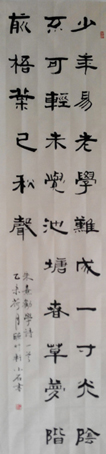 少年易老學難成一寸光陰
不可輕未覺池塘春草夢階
前梧葉已秋聲
朱熹勸學詩一首